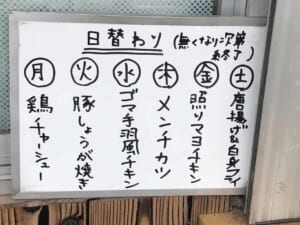 日替わり
(無くなり次第
終了)
月
鶏チャーシュー
火
豚しょうが焼き
水
ゴマ手羽風チキン
木
メンチカツ
金
照りマヨチキン
土
唐揚げ&白身フライ